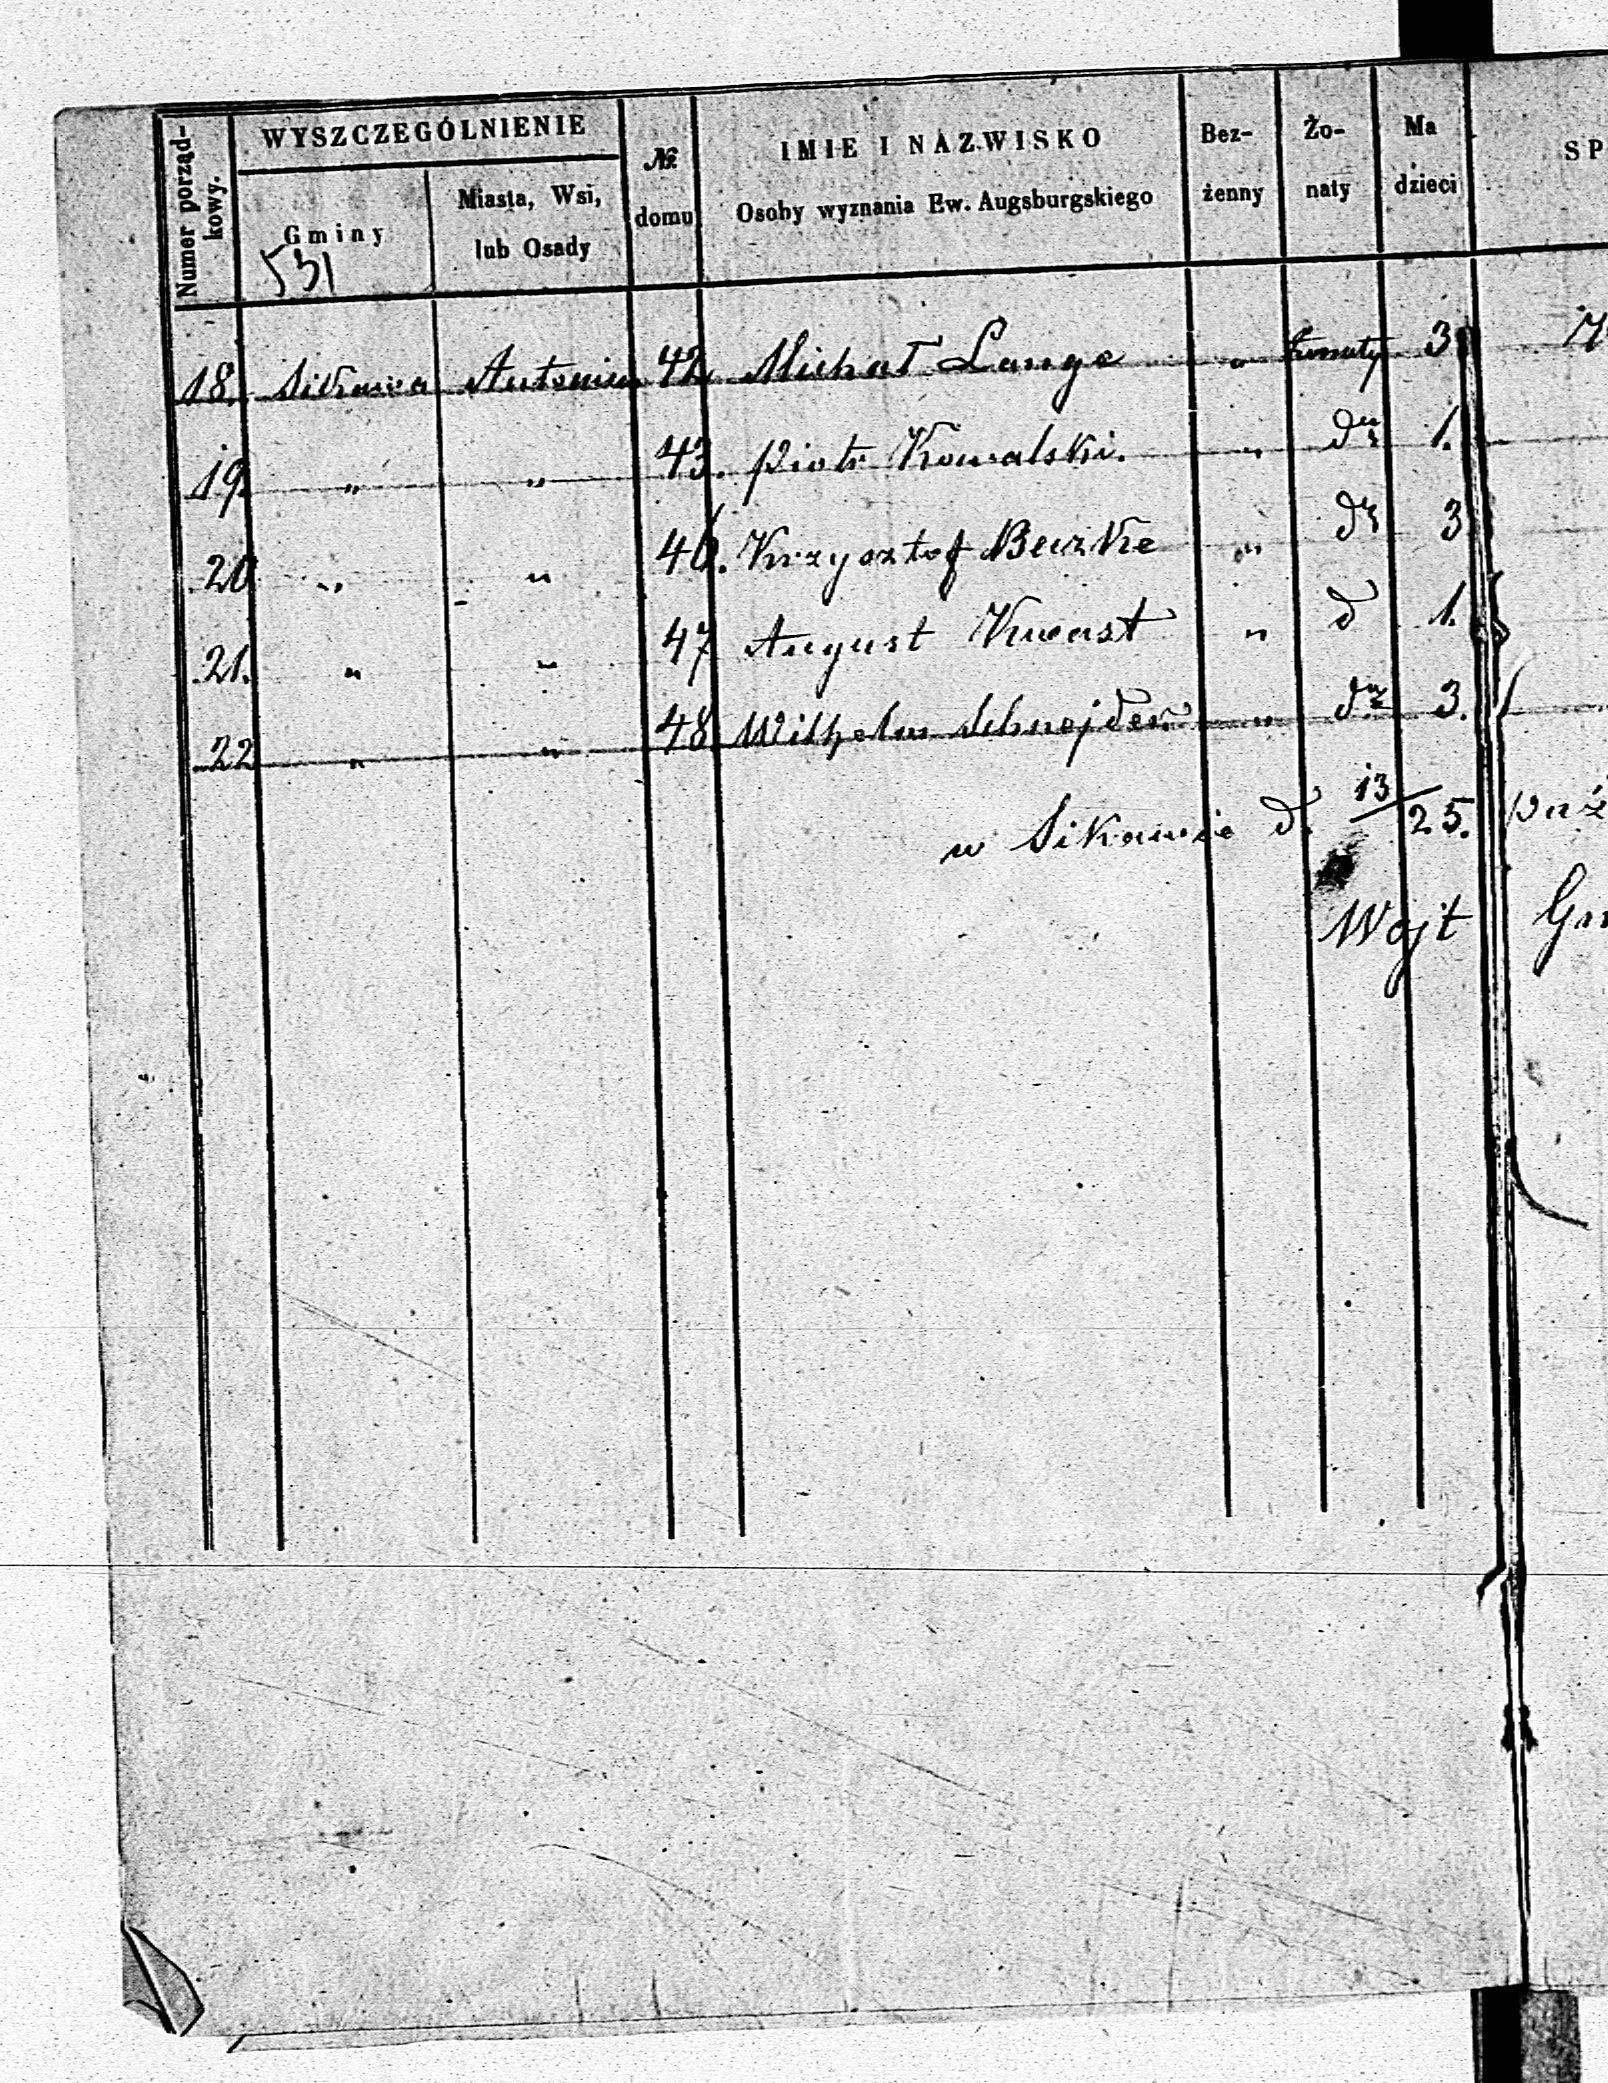 Numer porząd-
kowy.
WYSZCZEGÓLNIENIE
Gminy
Miasta, Wsi,
lub Osady
№
domu
IMIE I NAZWISKO
Osoby wyznania Ew. Augsburgskiego
Bez-
żenny
Żo-
naty
Ma
dzieci
SP
531
18. Sikawa Antoniew 42 Michał Lange " żonaty 3
19. " " 43. Piotr Kowalski. " 1.
20 " " 46. Krzysztof " 3
21. " " 47 August Kwast " d 1.
22 " " 48 Wilhelm Schnejder. " 3.
w Sikawie d. 13/25. paź
Wojt Gm